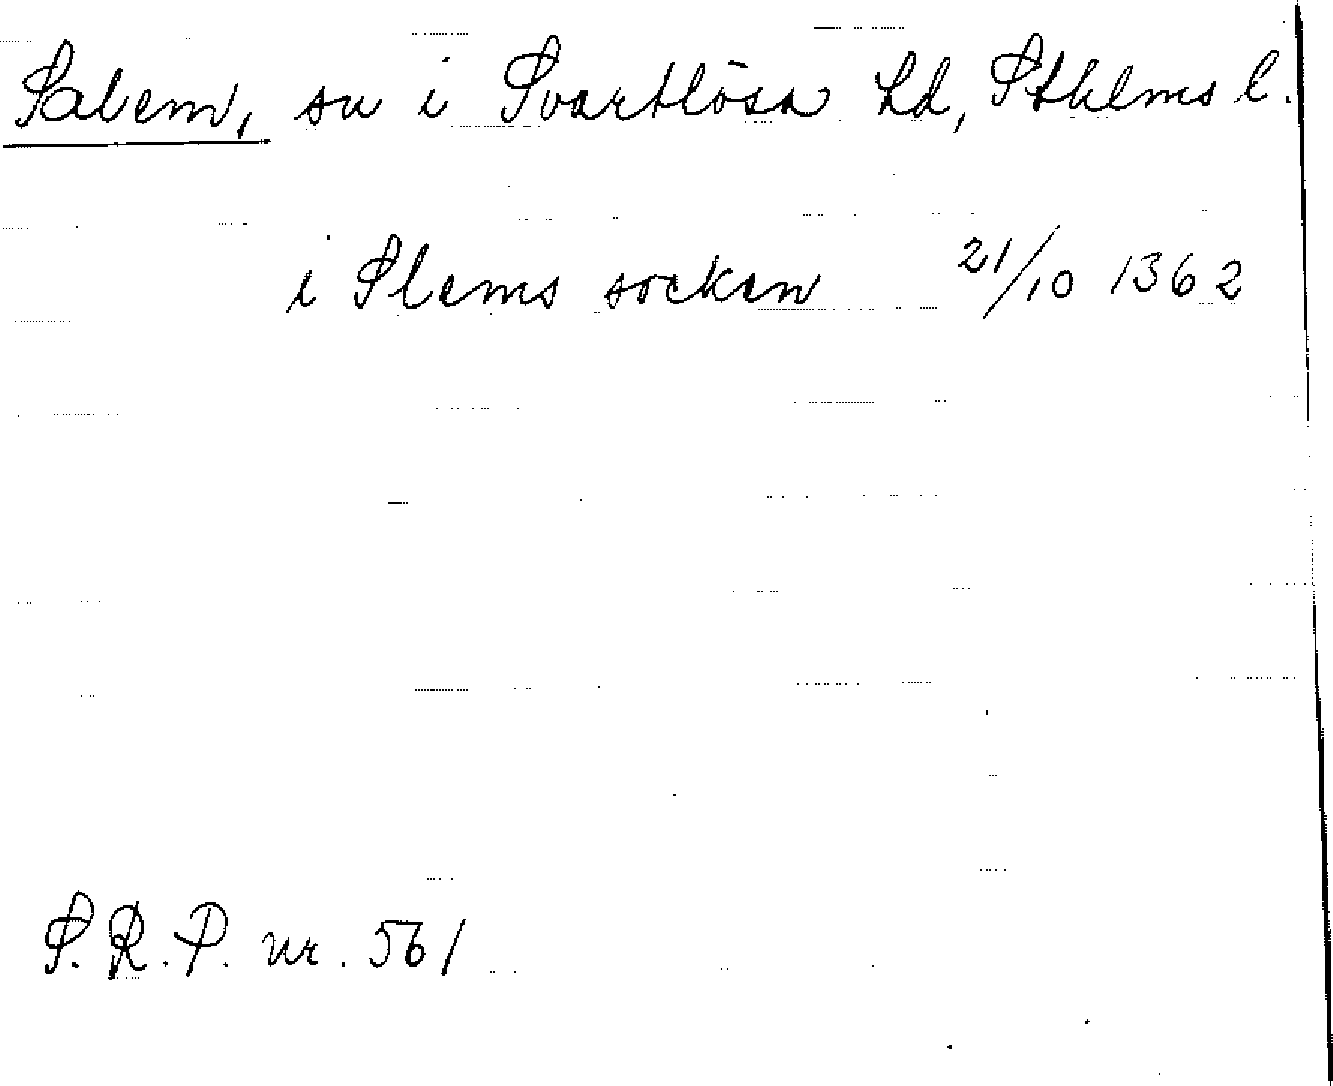 Salem, sn i Svartlösa hd, Sthlms l.
i Slems socken 21/10 1362
S.R.P. nr. 561